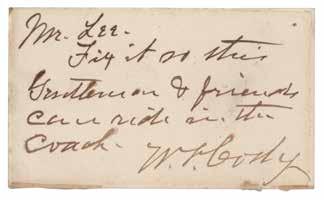 Mr. Lee.
Fix it so this
Gentleman & friends
can ride in the
coach.
W. F. Cody